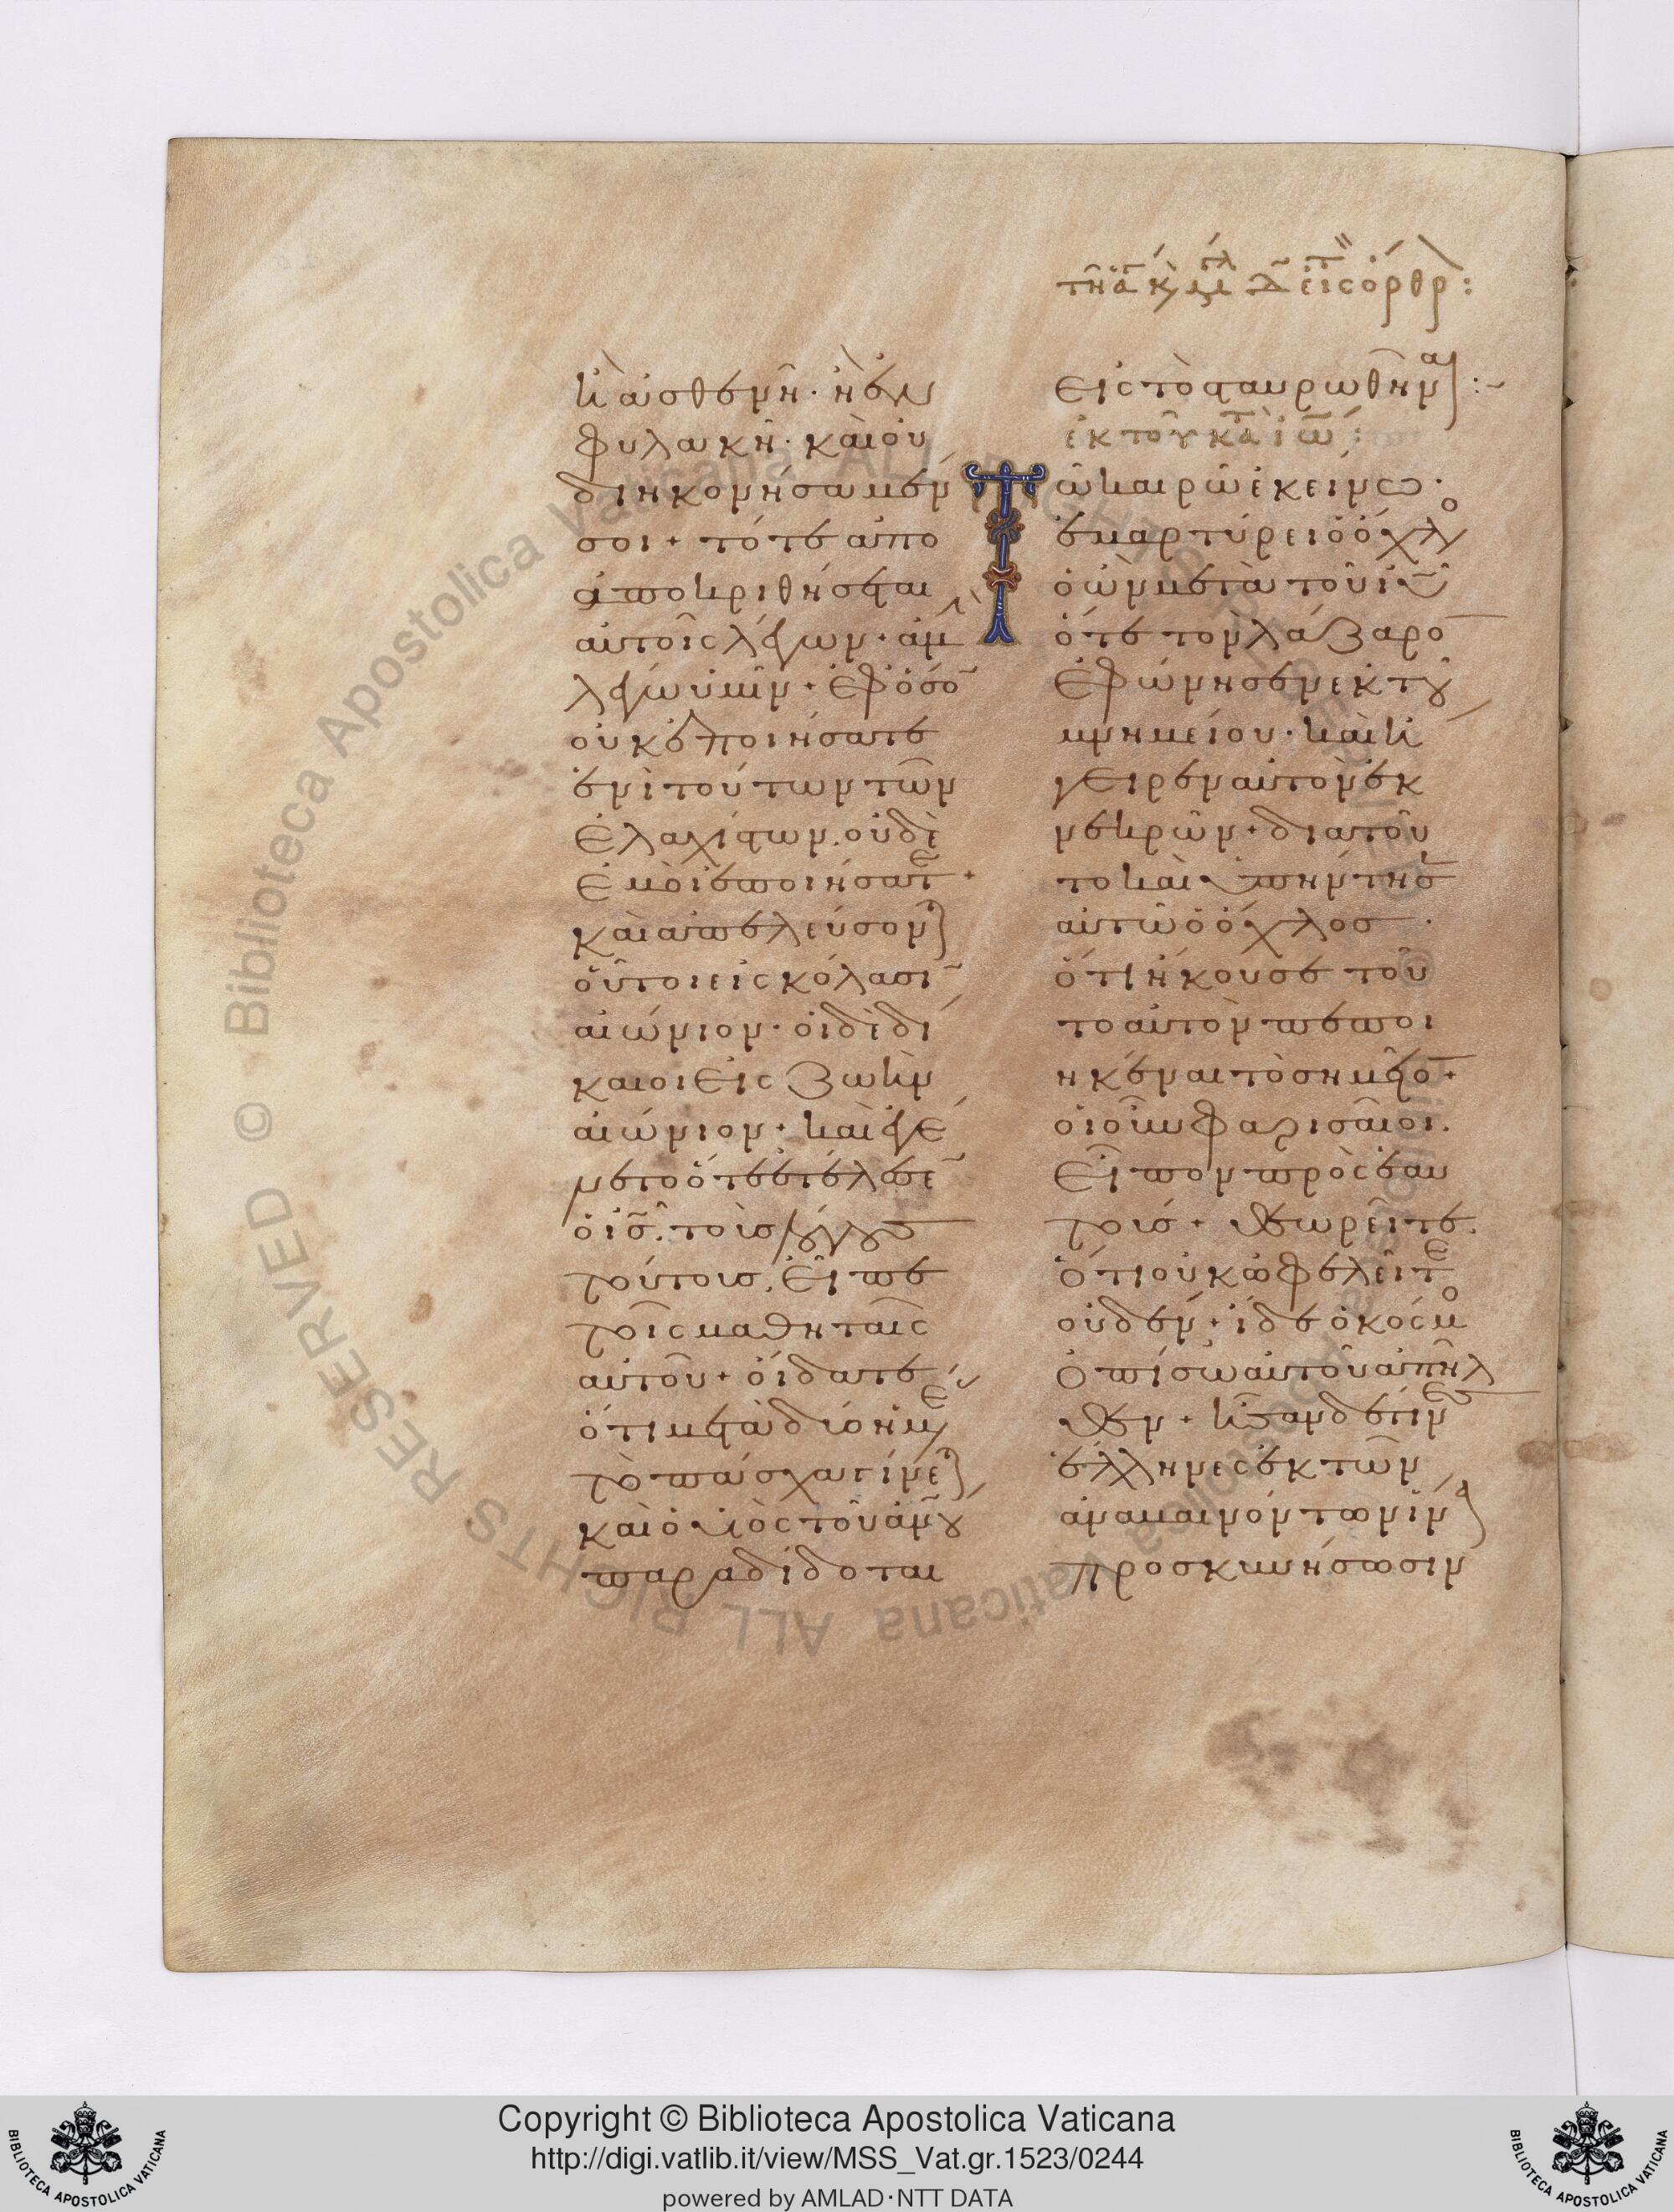 ἢ ἀσθενῆ· ἢ ἐν
φυλακῆ· καὶ οὐ
διηκονήσαμέν
σοι + τότε ἀπο
αποκριθήσεται
αὐτοῖς λέγων· ἀμὴ
λέγω ὑμῖν + ἐφ ὅσο
οὐκ ἐποιήσατε
ἑνὶ τούτων τῶν
ἐλαχίστων. οὐδὲ
ἐμοὶ ἐποιήσατε +
καὶ ἀπελεύσονται
οὗτοι εἰς κόλασι
αἰώνιον· οἱ δὲ δί
καιοι εἰς ζωὴν
αἰώνιον + καὶ ἐγέ
νετο ὅτε ἐτέλεσε
ὁ ις. τοὺς λόγους
τούτους. εἶπε
τοῖς μαθηταῖς
αὐτοῦ + οἴδατε
ὅτι μετὰ δύο ἡμέ
τὸ πάσχα γίνεται
καὶ ὁ υἱὸς τοῦ ανου
παραδίδοται
εἰς τὸ σταυρωθῆναι :~
ἐκ τοῦ κατὰ ιω :
ῶ καιρῶ ἐκείνω·
ἐμαρτύρει ὁ ὄχλο
ὁ ὢν μετὰ τοῦ ιυ
ὅτε τὸν λάζαρο
ἐφώνησεν ἐκ του
μνημείου· καὶ ἤ
γειρεν αὐτὸν ἐκ
νεκρῶν + διατοῦ
το καὶ ὑπήντησ
αὐτῶ ὁ ὄχλος ·
ὅτι ἤκουσε τοῦ
το αὐτὸν πεποι
ηκέναι τὸ σημεῖο +
οἱ οὖν φαρισαῖοι.
εἶπον πρὸς ἑαυ
τούς + θεωρεῖτε
ὅτι οὐκ ὠφελεῖτε
οὐδέν + ἴδε ὁ κόσμο
ὀπίσω αὐτοῦ ἀπῆλ
θεν + ἦσαν δέ τινες
ἕλληνες ἐκ τῶν
ἀναβαινόντων ἵνα
προσκυνήσωσιν
Copyright © Biblioteca Apostolica Vaticana
http://digi.vatlib.it/view/MSS_Vat.gr.1523/0244
powered by AMLAD·NTT DATA